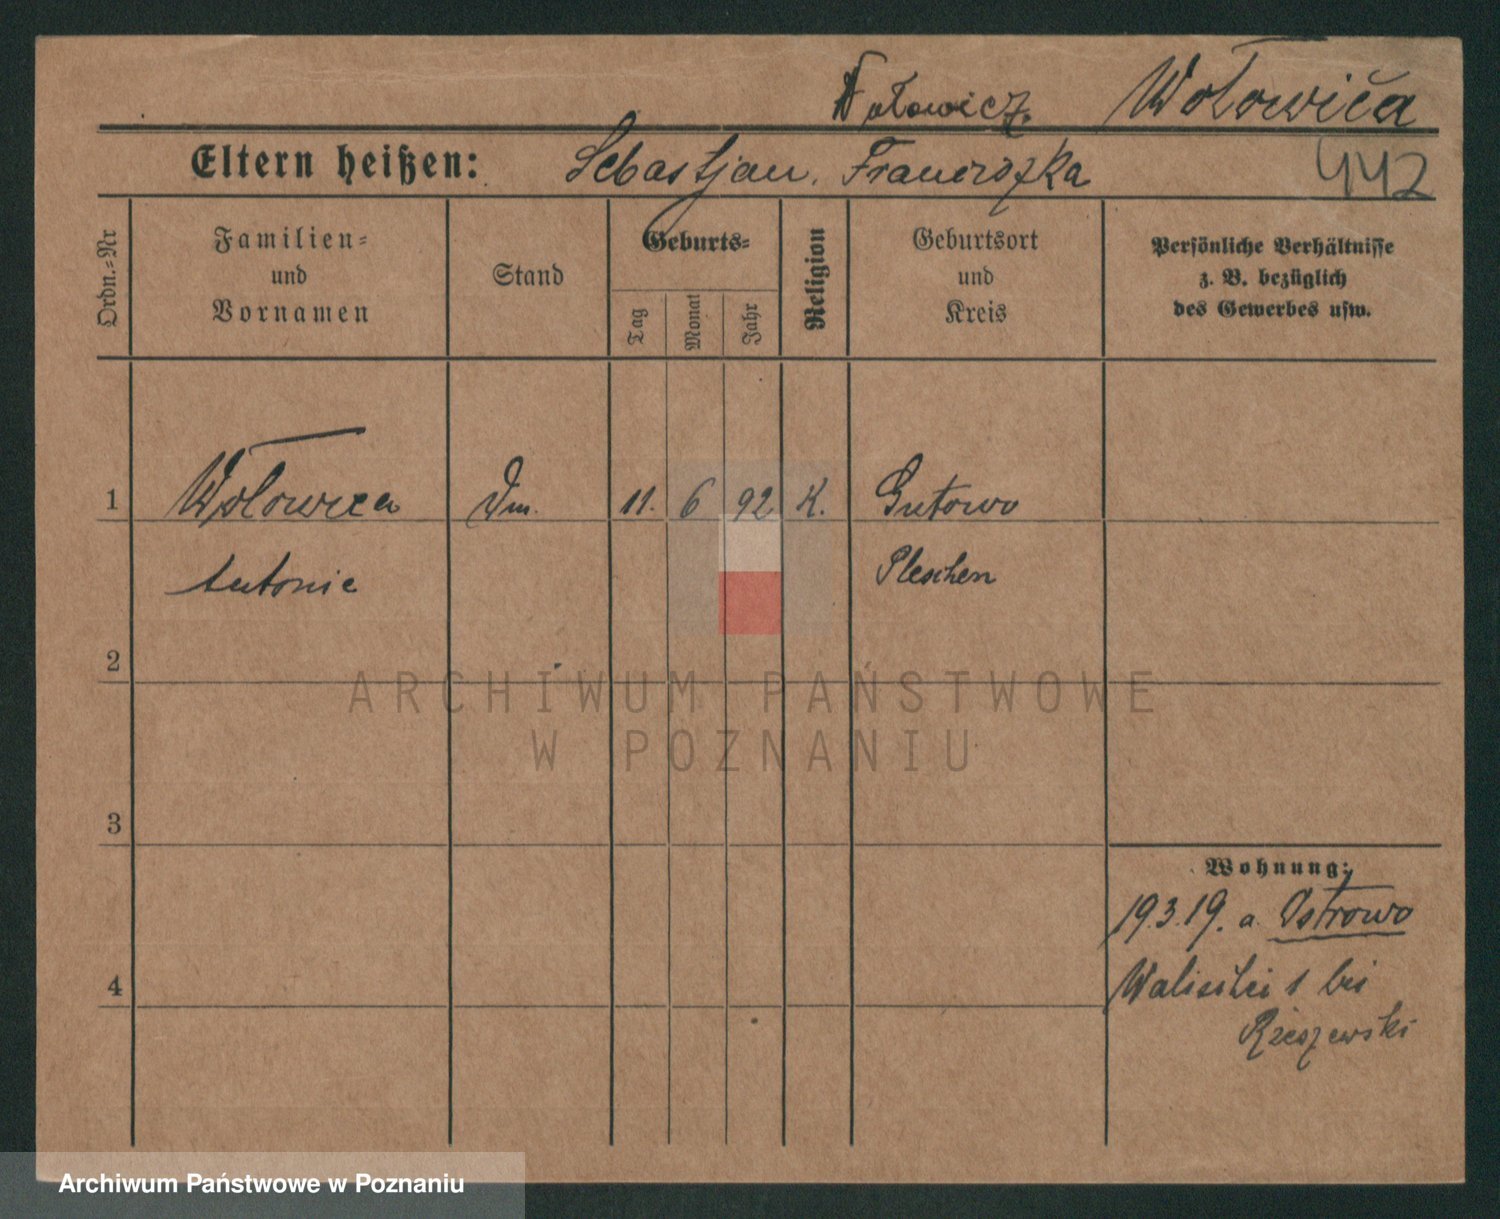 Wołowicz. Wołowica
Eltern heißen: Sebastjan, Franciszka 442
Ordn.-Nr
Familien-
und
Vornamen
Stand
Geburts-
Tag
Monat
Jahr
Religion
Geburtsort
und
Kreis
Persönliche Verhältnisse
z. B. bezüglich
des Gewerbes usw.
1 Wołowica 11. 6 92 K. Gutowo
Antonie Pleschen
2
3
4
Wohnung:
19.3.19. a. Ostrowo
Walischei 1 bei
Rzeszewski
ARCHIWUM PAŃSTWOWE
W POZNANIU
Archiwum Państwowe w Poznaniu